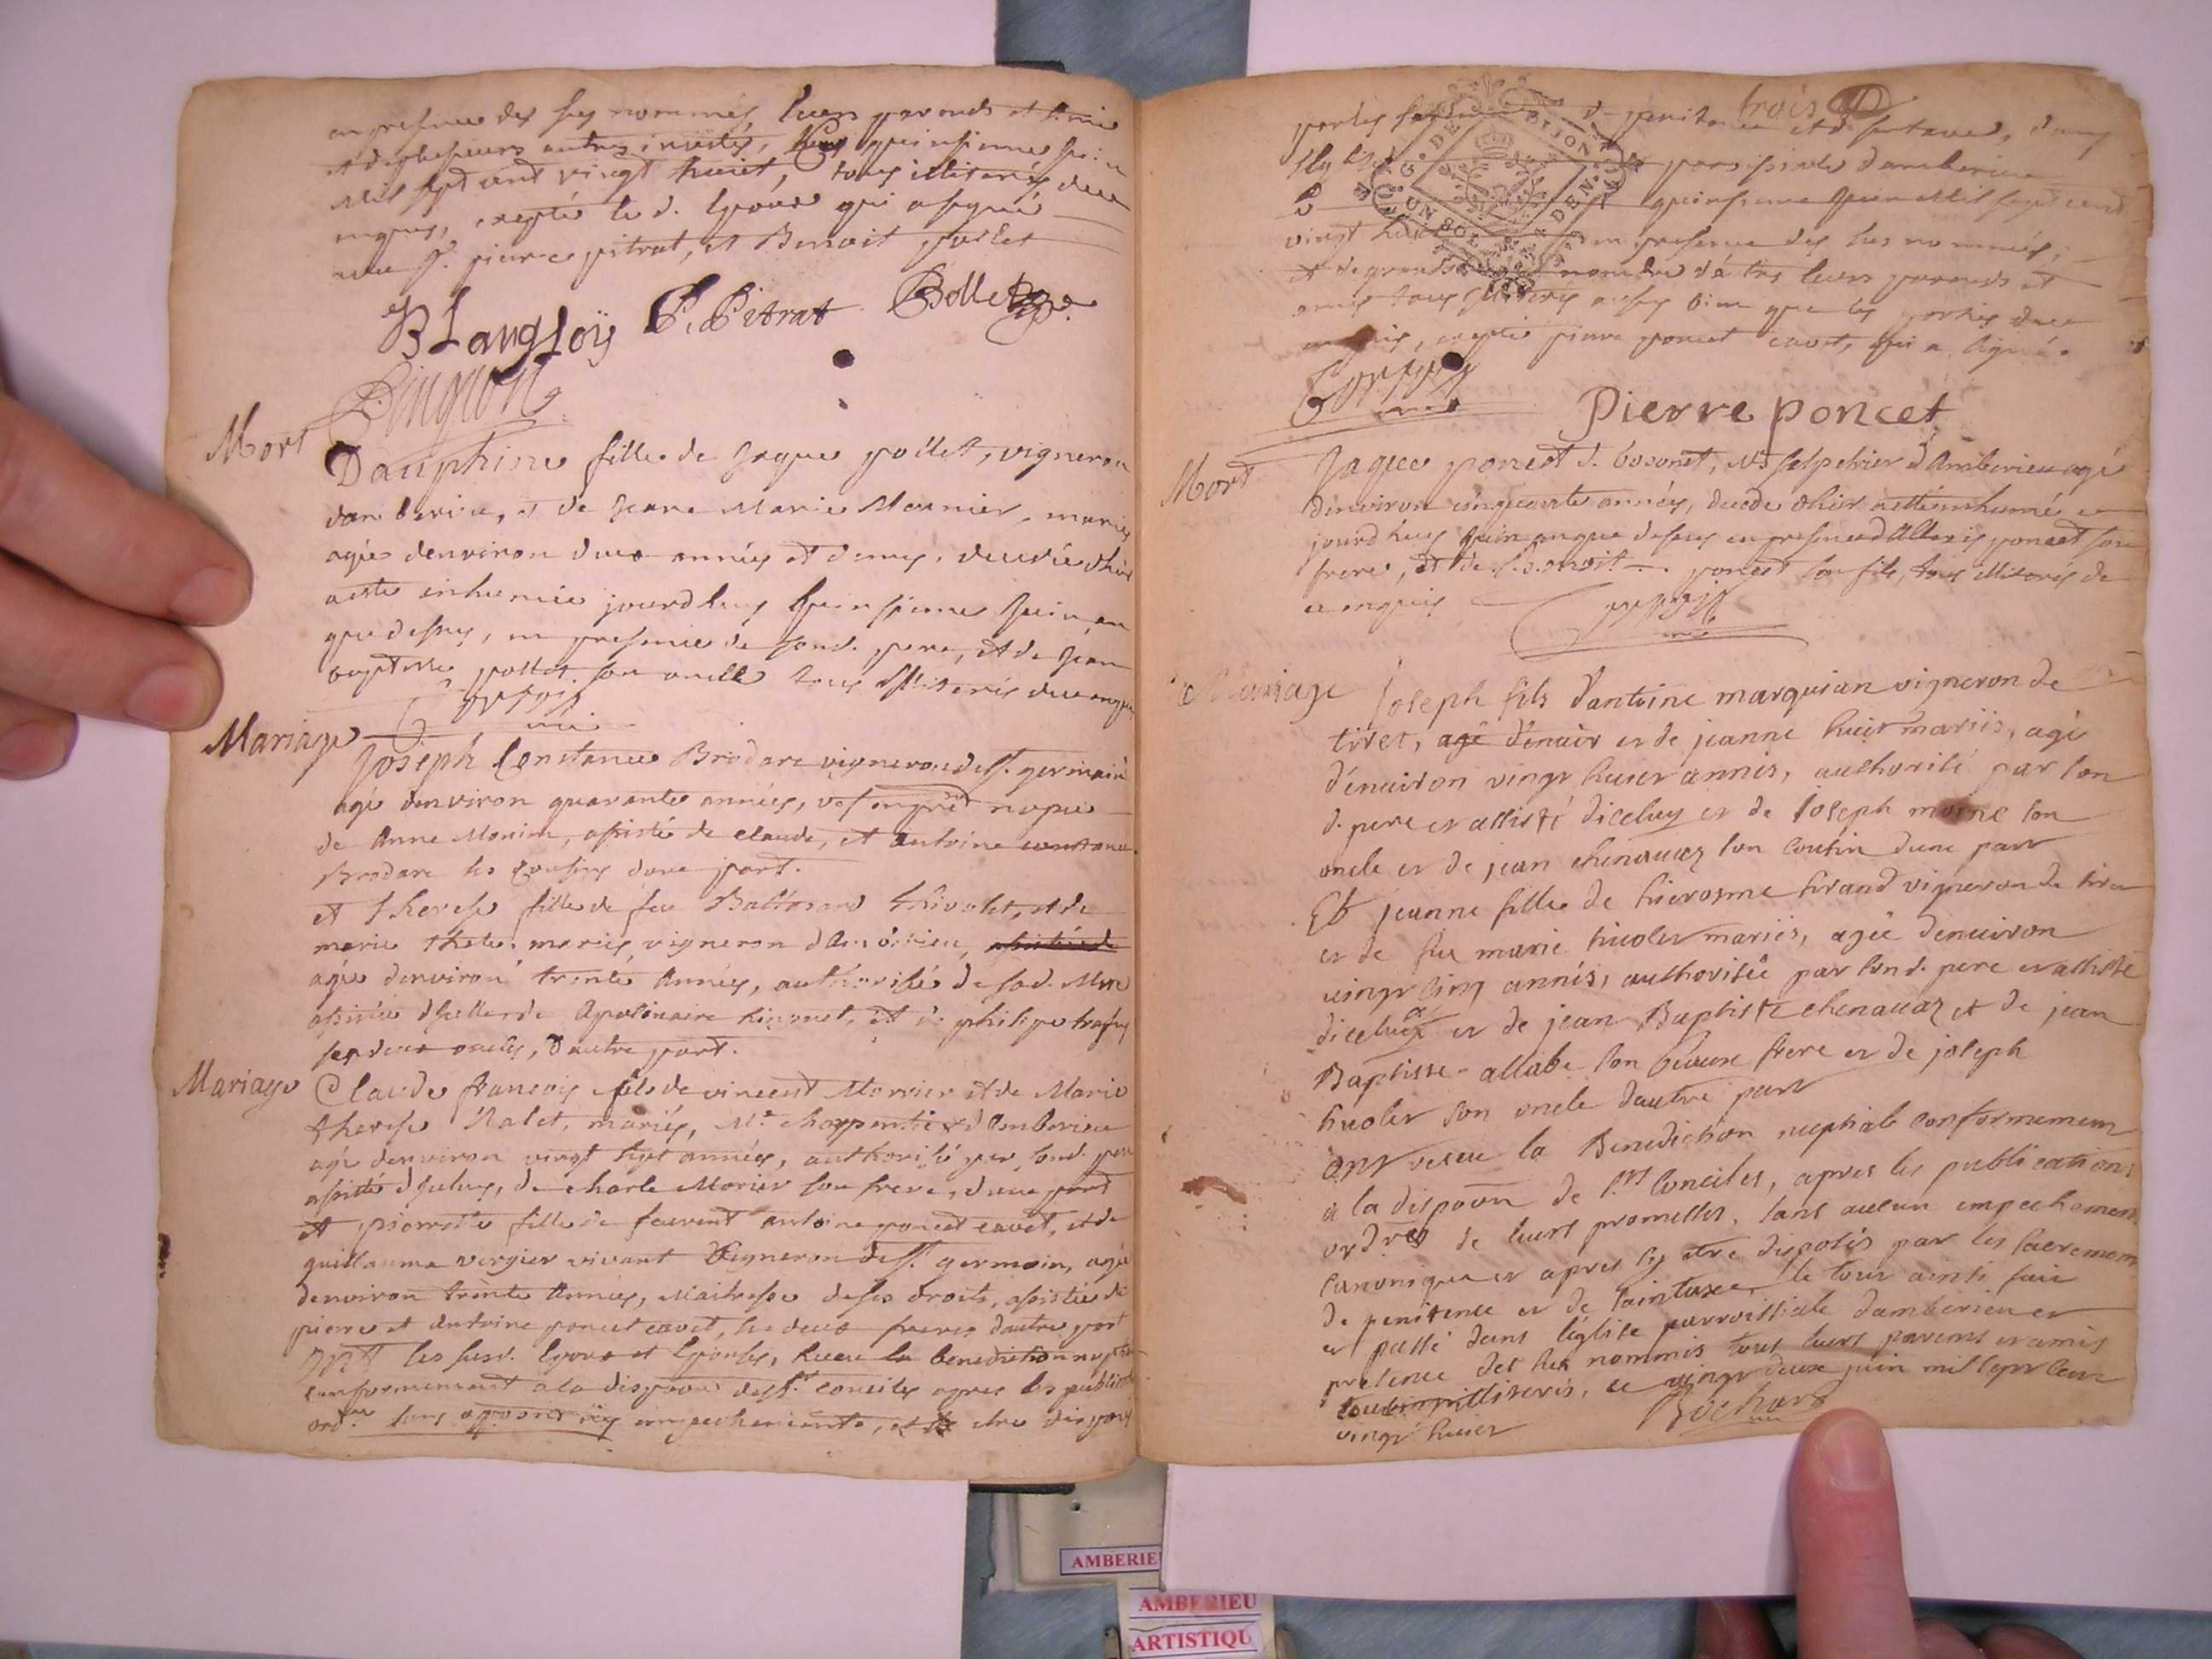 en presence des sus nommés, leurs parents et amis
et de plusieurs autres invités, ce quinsieme juin
mil sept cent vingt huict, tous illiterés de ce
enquis, excepté led. Epoux qui a signé
avec Sr. pierre pitrat, et Benoit pollet
B Langloÿ P. Pitrat Bollet
Mort
Dauphine fille de Jaque pollet, vigneron
damberieu, et de Jeane Marie Meunier, mariés
agée denviron deux années et demy, decedée d'hier
a esté inhumée jourdhuy quinsieme Juin, an
que dessus, en presence de sond. pere, et de Jean
baptiste pollet son oncle tous illiterés de ce enquis
Mariage
Joseph Constance Brodare vigneron de St. germain
agé denviron quarante années, vef en pred. nopces
de Anne Monin, assisté de Claude, et antoine constance
Brodare ses Cousins d'une part.
et Therese fille de feu Baltasard trivolet, et de
marie mariés, vigneron d'Amberieu,
agée denviron trente Années, authorisée de sad. Mere
assistée d'icelle de Apolinaire et de philipe
ses deux oncles, D'autre part.
Mariage
Claude francois fils de vincent Morrier et de Marie
therese Nalet, mariés, Me. charpentier d'Amberieu
agé denviron vingt sept années, authorisé par sond. pere
assisté d'iceluy, de charle Morier son frere, d'une part
et pierrette fille de feu antoine poncet cavet, et de
guillauma vergier vivant Vigneron de St. germain, agée
denviron trente Années, Maitresse de ses droits, assistée de
pierre et Antoine poncet cavet, ses deux freres d'autre part
Ont les susd. Epoux et Epouses, receu la benediction nuptiale
conformement a la dispoon des Sts. conciles apres les publications
ordres. sans opposition ny empechements, et etre disposés
trois
par les sacrements de penitence et de , dans
l'Eglise parrissiale damberieu
ce quinsieme Juin Mil sept cent
vingt huict en presence des sus nommés,
et de grand nombre d'autres leurs parents et
amis tous illiterés aussy bien que les parties de ce
enquis, excepté pierre poncet cavet, qui a signé.
Pierre poncet
Mort
Jaque poncet d. bosonet, Me salpetrier d'Amberieu agé
denviron cinquante années, decedé d'hier a esté inhumé ce
jourdhuy Juin an que dessus en presence d'Allexis poncet son
frere, et de benoit poncet son fils, tous illiterés de
ce enquis
Mariage
Joseph fils d'antoine marquisan vigneron de
tiret, agé denvir et de jeanne huit mariés, agé
d'environ vingt huict années, authorisé par son
d. pere et assisté diceluy et de Joseph moine son
oncle et de jean chenavaz son cousin d'une part
Et jeanne fille de hierosme tirand vigneron de tiret
et de feu marie hugoler mariés, agée denviron
vingt cinq années, authorisée par sond. pere et assistée
diceluy et de jean Baptiste chenavaz et de jean
Baptiste allabe son beaux frere et de joseph
hugoler son oncle dautre part
Ont receu la Benediction nuptiale conformement
a la dispoon de Sts. Conciles, apres les publications
ordres. de leurs promesses, sans aucun empechement
canonique et apres s'y etre disposés par les sacrements
de penitence et de , le tout ainsi fait
et passé dans l'eglise parroissiale damberieu en
presence des sus nommés tous leurs parens et amis
illiterés, ce vingt deux juin mil sept cent
vingt huict
Bochard
G. DE DIJON
UN SOL
AMBERIE
AMBERIEU
ARTISTIQU